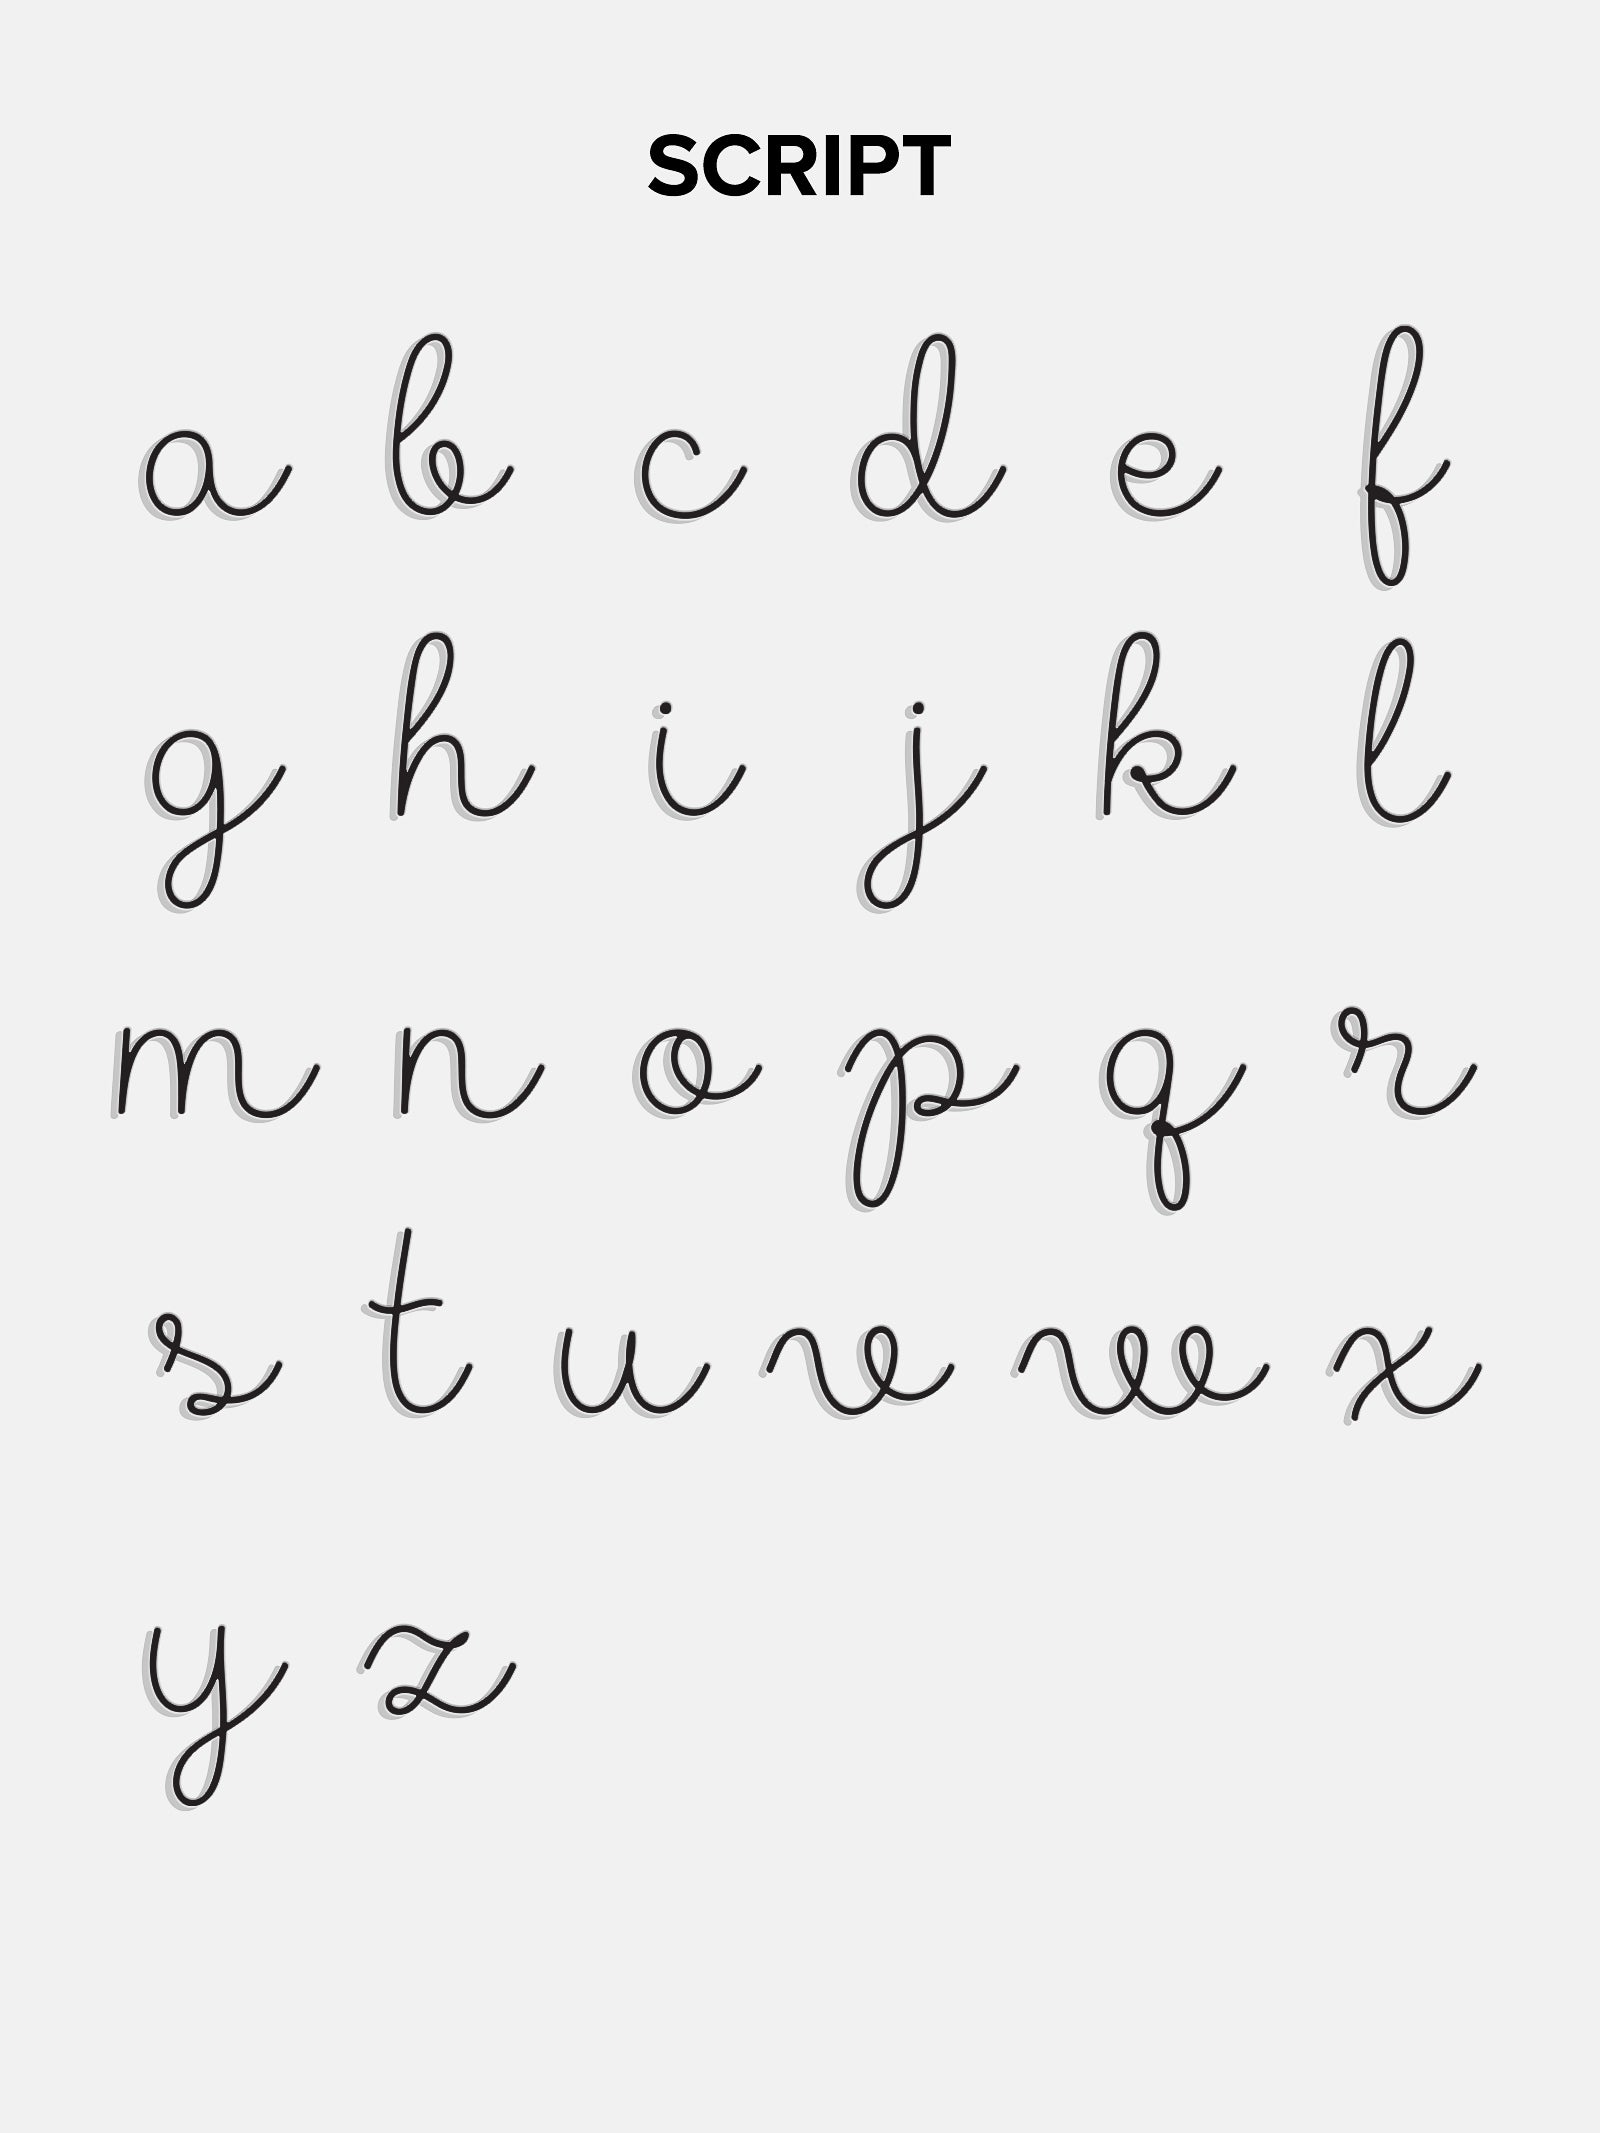 SCRIPT
a b c d e f
g h i j k l
m n o p q r
s t u v w x
y z